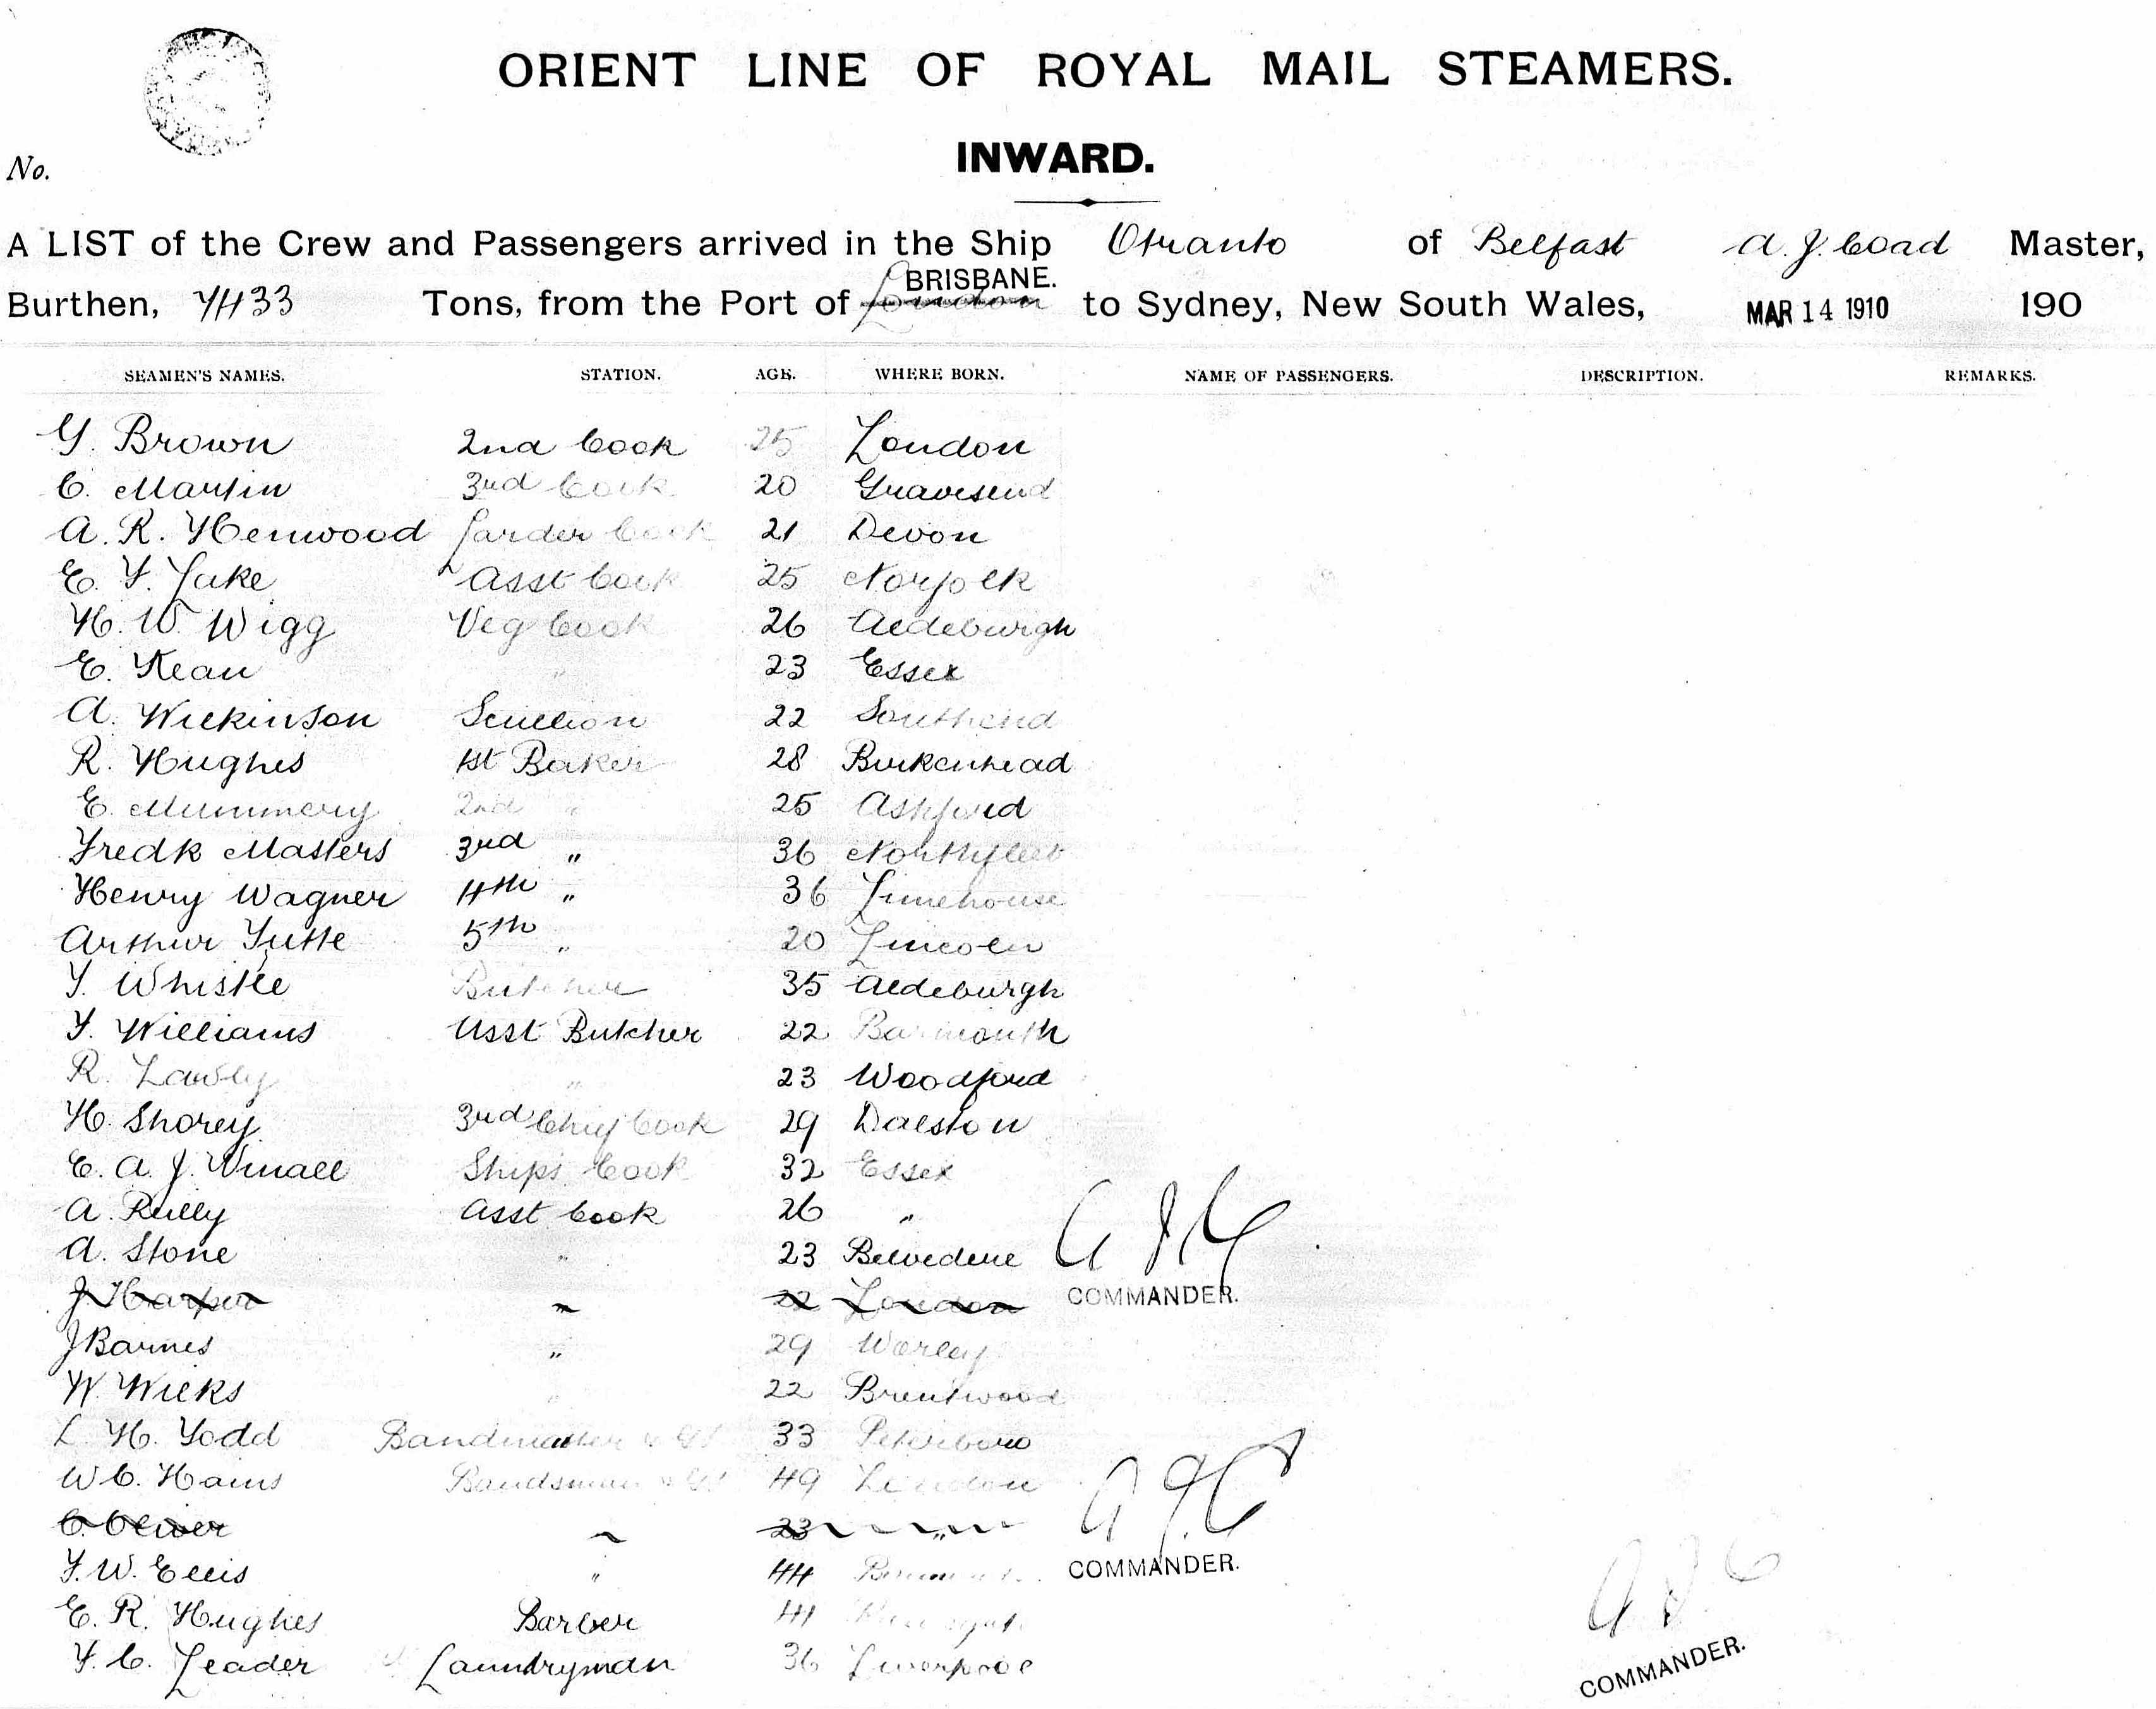 ORIENT LINE OF ROYAL MAIL STEAMERS.
INWARD.
No.
A LIST of the Crew and Passengers arrived in the Ship Otranto of Belfast A. J. Coad Master,
BRISBANE.
Burthen, 7433 Tons, from the Port of London to Sydney, New South Wales, MAR 14 1910 190
SEAMEN'S NAMES. STATION. AGE. WHERE BORN. NAME OF PASSENGERS. DESCRIPTION. REMARKS.
G. Brown 2nd Cook 25 London
C. Martin 3rd Cook 20 Gravesend
A. R. Henwood Larder Cook 21 Devon
E. F. Lake Asst Cook 25 Norfolk
H. W. Wigg Veg Cook 26 Aldeburgh
E. Kean " 23 Essex
A. Wilkinson Scullion 22 Southend
R. Hughes 1st Baker 28 Birkenhead
E. Mummery 2nd " 25 Ashford
Fredk Masters 3rd " 36 Northfleet
Henry Wagner 4th " 36 Limehouse
Arthur 5th " 20 Lincoln
F. Whistle Butcher 35 Aldeburgh
F. Williams Asst Butcher 22 Barmouth
R. " 23 Woodford
H. Shorey 3rd Chief Cook 29 Dalston
E. A. J. Ships Cook 32 Essex
A. Asst Cook 26 "
A. Stone " 23 Belvedere
J. Harper " 22 London
COMMANDER.
J Barnes " 29 Worley
W. Wicks " 22 Brentwood
L. H. Todd Bandmaster 33 Peterboro
W C. Hams Bandsman 49 London
C. Oliver " 23 "
F. W. Ellis " 44
COMMANDER.
E. R. Hughes Barber 41
F. C. Leader Laundryman 36 Liverpool
COMMANDER.